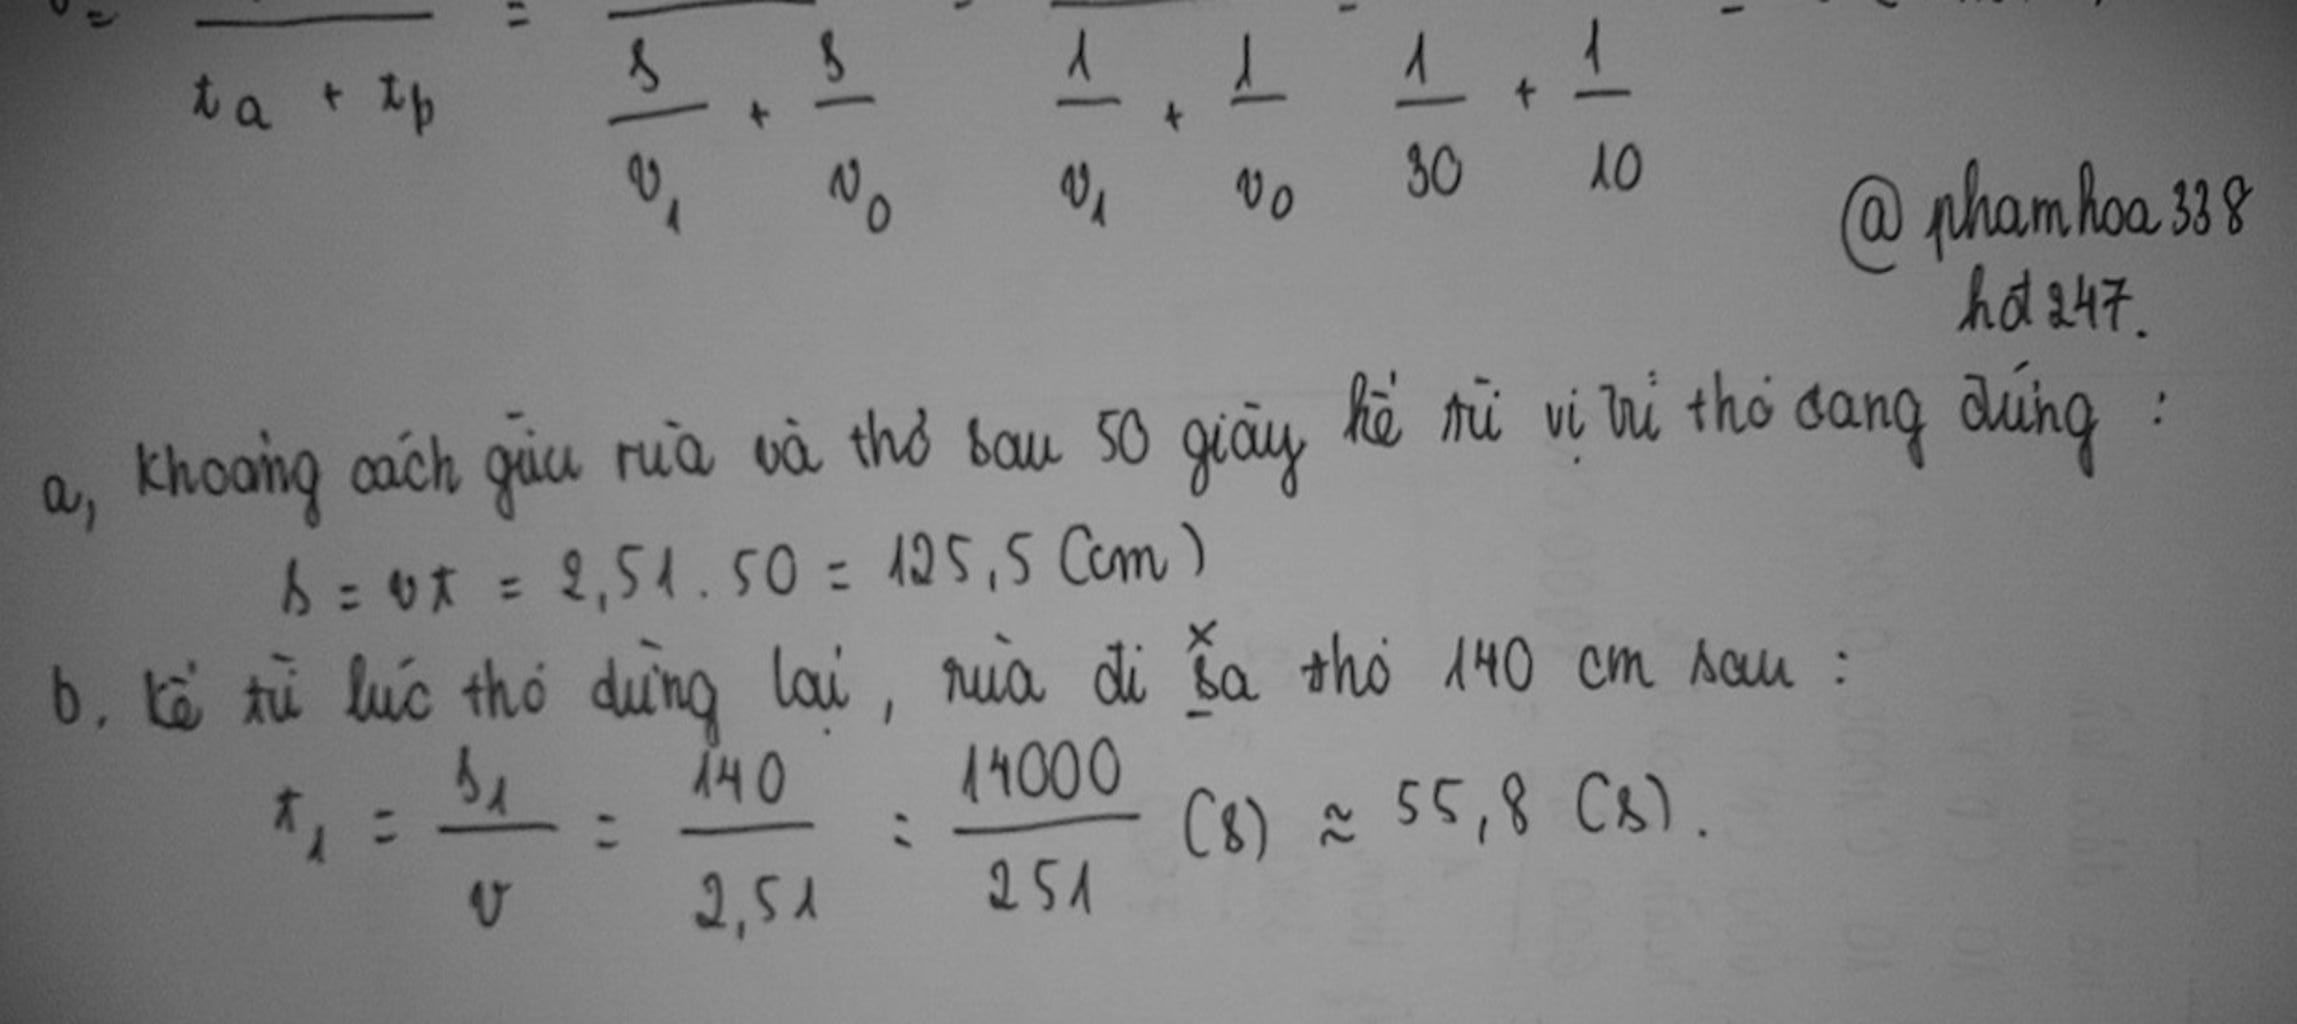 v = ――― = ――― = ――― = ――― =
t a + t b   s/v1 + s/v0   1/v1 + 1/v0   1/30 + 1/10
@ phamhoa338
hd247.
a, Khoảng cách giữa rùa và thỏ sau 50 giây kể từ vị trí thỏ đang đứng :
s = vt = 2,51 . 50 = 125,5 (cm)
b. Kể từ lúc thỏ dừng lại, rùa đi xa thỏ 140 cm sau :
t1 = s1/v = 140/2,51 = 14000/251 (s) ≈ 55,8 (s).